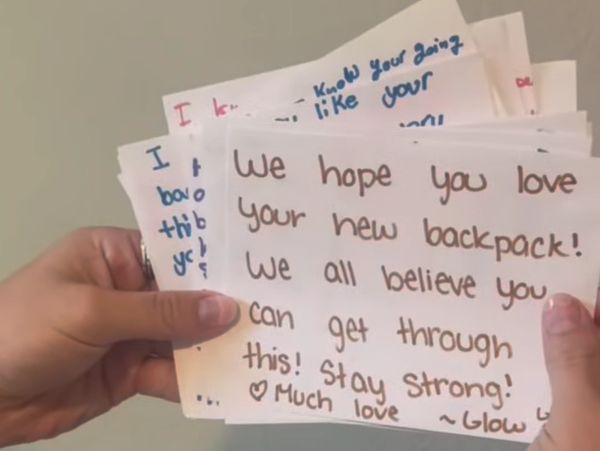 Know your going
I
like your
I
We hope you love
your new backpack!
We all believe you
can get through
this! Stay strong!
♡ Much love ~Glow